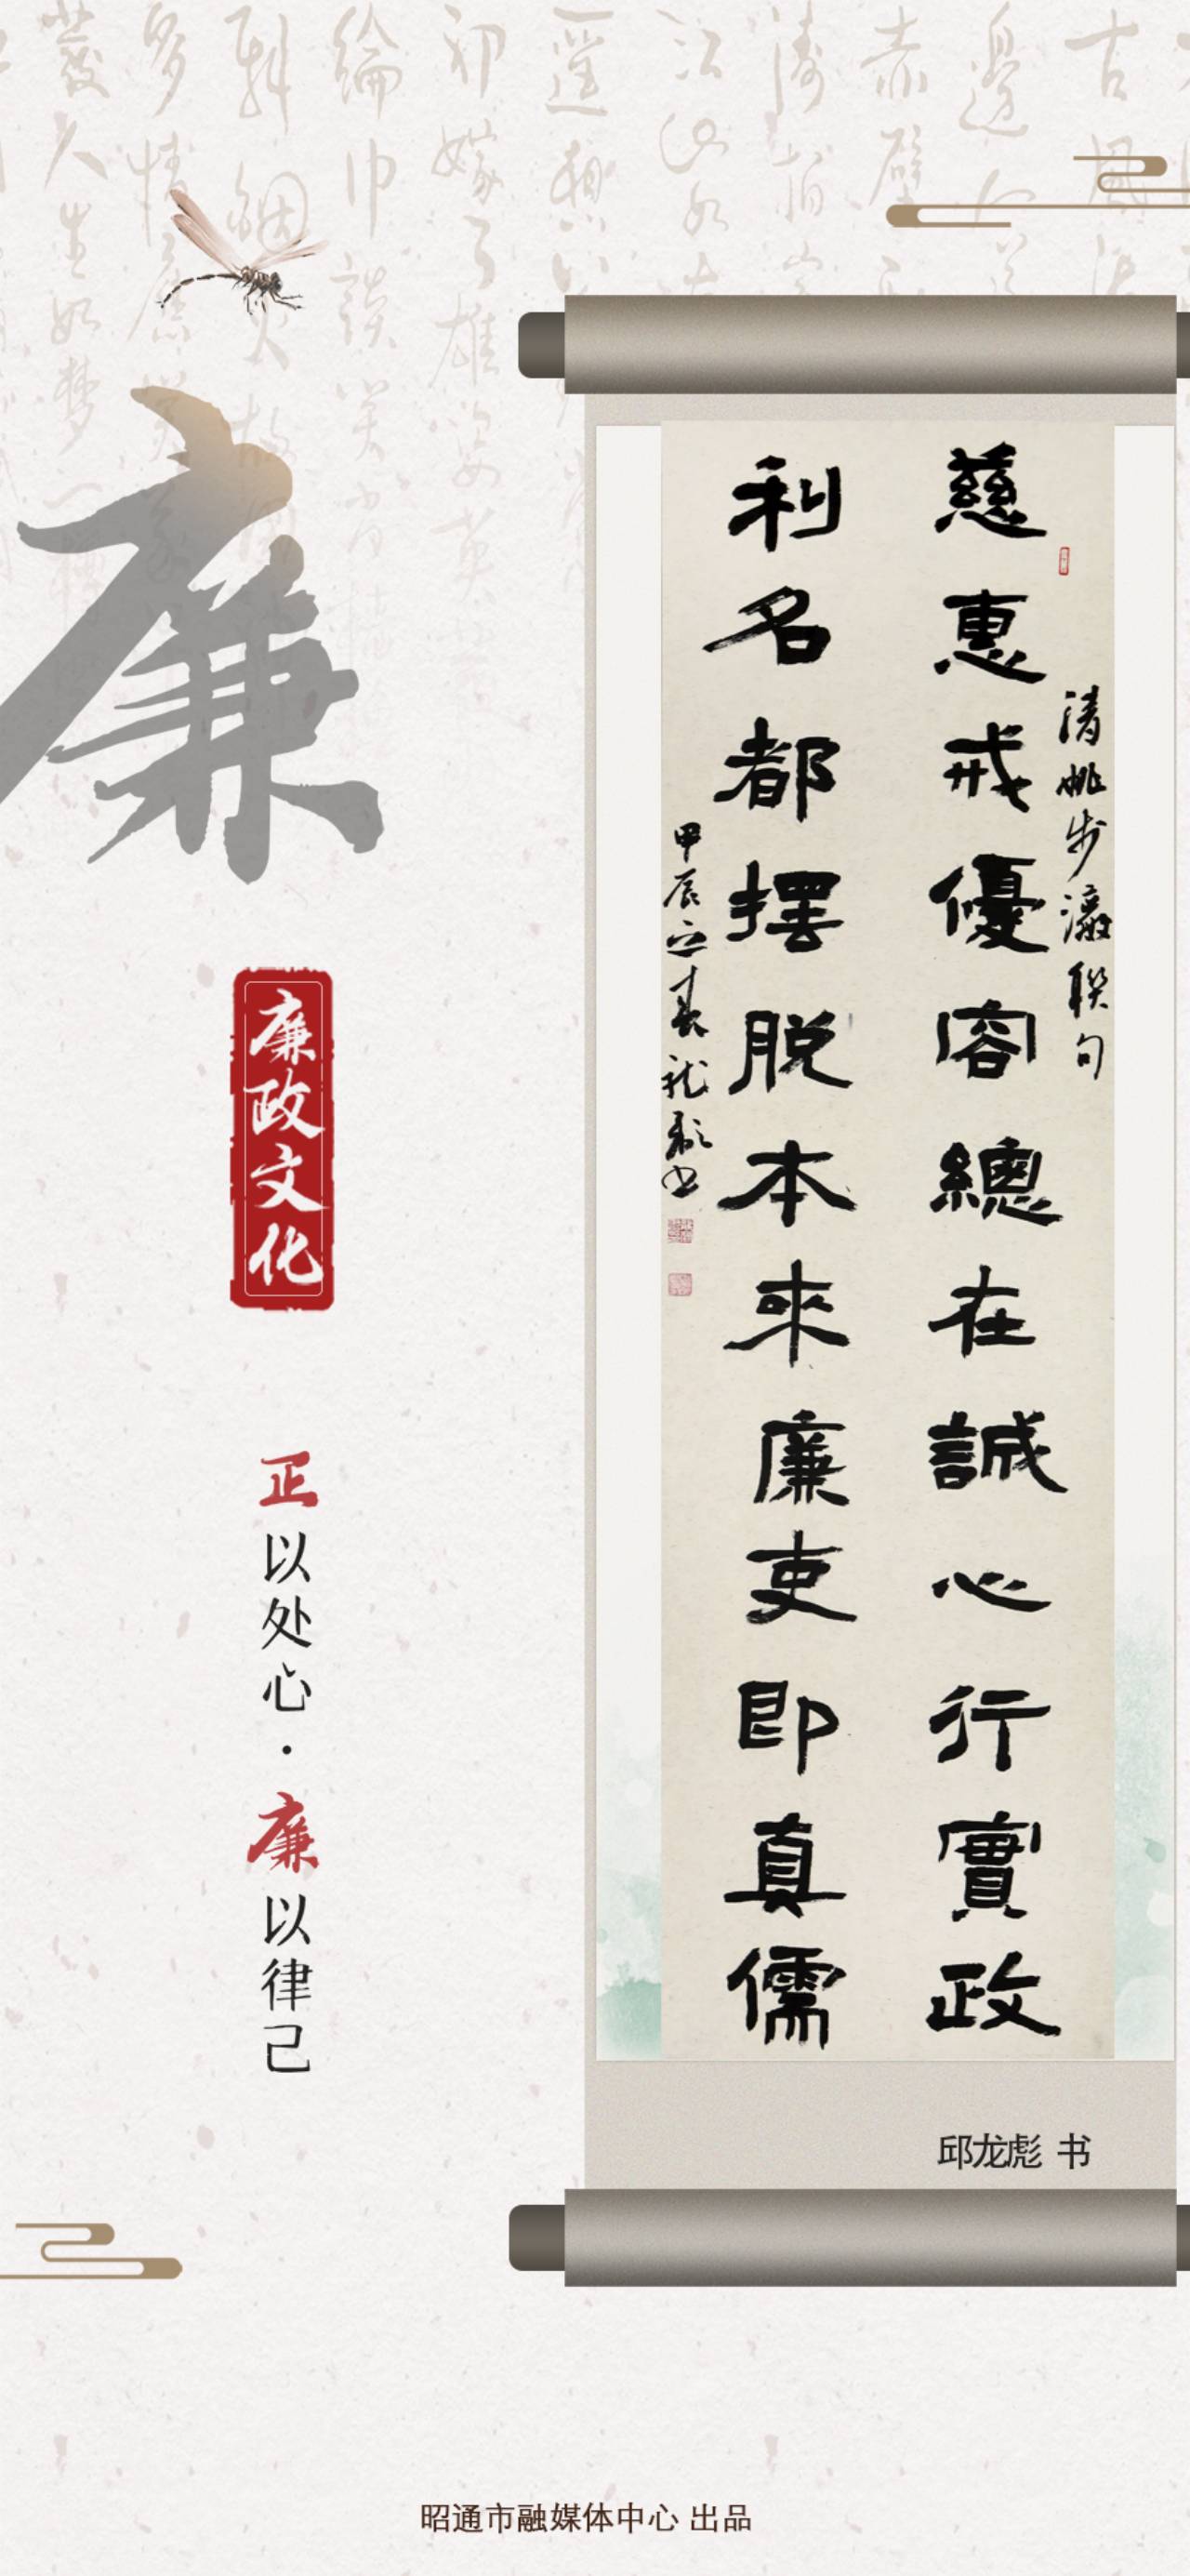 廉
廉政文化
正以处心·廉以律己
清姚步瀛聯句
慈惠戒優容總在誠心行實政
利名都摆脱本來廉吏即真儒
甲辰立春龙彪书
邱龙彪 书
昭通市融媒体中心 出品